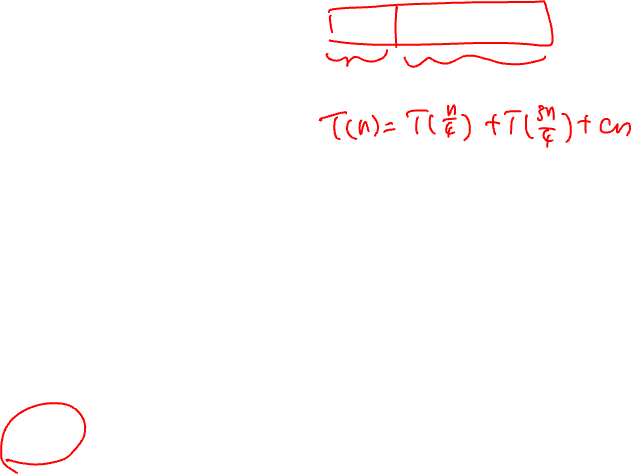 T(n) = T(n/4) + T(3n/4) + cn